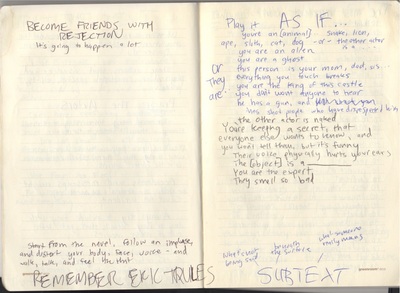 BECOME FRIENDS WITH
REJECTION
It's going to happen a lot
start from the navel, follow an impluse,
and distort your body, face, voice - and
walk, talk, and feel the that
REMEMBER ERIC TRULES
Play it AS IF...
you're an [animal] snake, lion,
ape, sloth, cat, dog -or- the other actor
is a...
you are an alien
you are a ghost
or this person is your mom, dad, sis..
They everything you touch breaks
are: you are the king of this castle
you don't want anyone to hear
he has a gun, and
shot people who have disrespected him
the other actor is naked
You're keeping a secret that
everyone else wants to know, and
you won't tell them, but it's funny
Their voice physically hurts your ears
The [object] is a
You are the expert
They smell so bad
What's not being said
beneath the surface
what someone really means
SUBTEXT